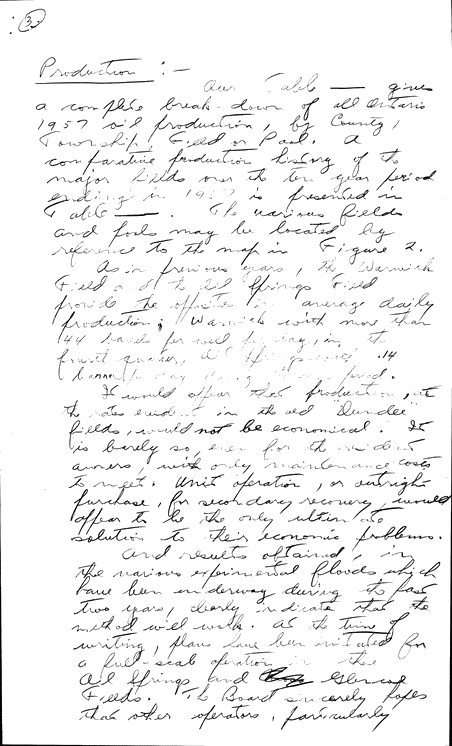 3
Production :-
Our Table — gives
a complete break-down of all Ontario
1957 oil production, by County,
Township, Field or Pool. A
comparative production history of the
major fields over the ten year period
ending in 1957 is presented in
Table — . The various fields
and pools may be located by
reference to the map in Figure 2.
As in previous years, the Warwick
Field and the Oil Springs Field
provide the opposite in average daily
production; Warwick with more than
44 barrels per well per day, in the
fourth quarter, .14
barrel
It would appear that production, at
the rates evident in the old "Dundee"
fields, would not be economical. It
is barely so, even for the resident
owners, with only maintenance costs
to meet. Unit operation, or outright
purchase, for secondary recovery, would
appear to be the only ultimate
solution to their economic problems.
And results obtained, in
the various experimental floods which
have been underway during the past
two years, clearly indicate that the
method will work. At the time of
writing, plans have been initiated for
a full-scale operation in the
Oil Springs and Glencoe
Fields. The Board sincerely hopes
that other operators, particularly